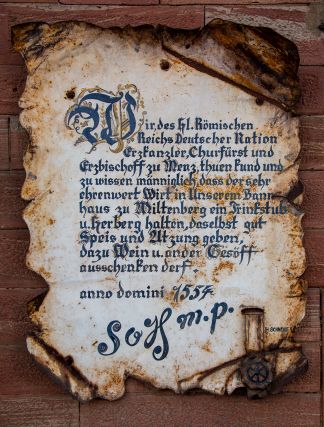 Wir, des hl. Römischen
Reichs Deutscher Nation
Erzkanzler, Churfürst und
Erzbischoff zu Menz, thuen kund und
zu wissen männiglich, dass der sehr
ehrenwert Wirt in Unserem Bann-
haus zu Miltenberg ein Trinkstub
u. Herberg halten, daselbst gut
Speis und Atzung geben,
dazu Wein u. ander Gesöff
ausschenken derf.
anno domini 1554
m.p.